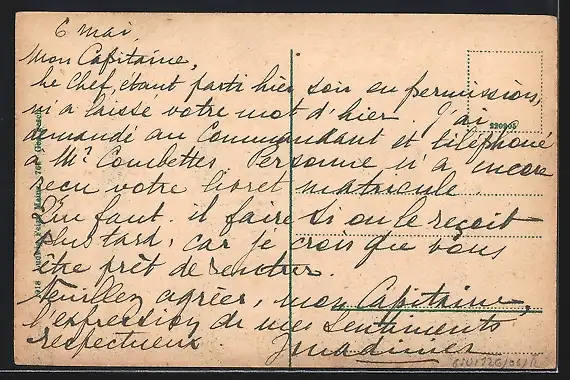 6 mai
Mon Capitaine,
Le Chef, étant parti hier soir en permission,
m'a laissé votre mot d'hier. J'ai
demandé au Commandant et téléphoné
à Mr. Combettes Personne n'a encore
recu votre livret matricule.
Que faut. il faire si on le reçoit
plus tard, car je crois que vous
être prêt de rentrer.
Veuillez agréer, mon Capitaine,
l'expression de mes sentiments
respectueux
220905
1918